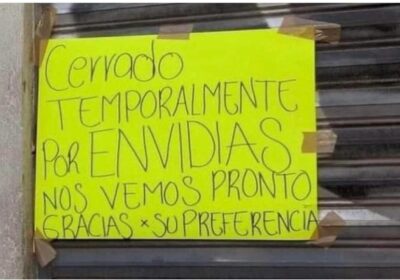 Cerrado
TEMPORALMENTE
POR ENVIDIAS
NOS VEMOS PRONTO
GRACIAS × SU PREFERENCIA